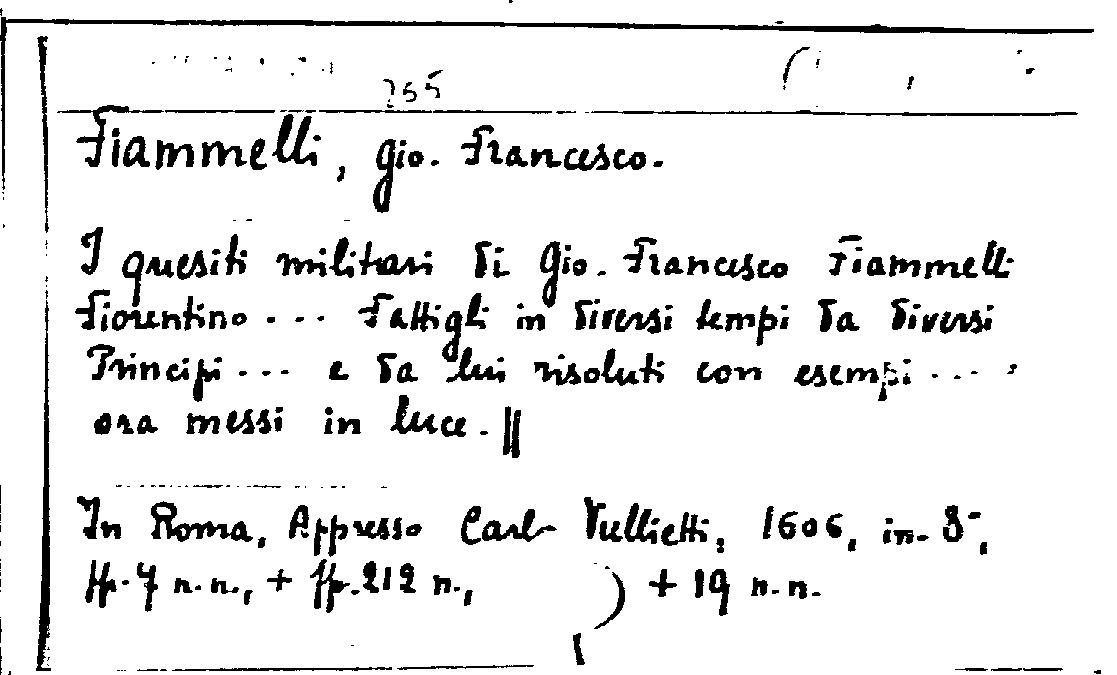 255
Fiammelli, Gio. Francesco.
I quesiti militari di Gio. Francesco Fiammelli
Fiorentino ... Fattigli in diversi tempi da diversi
Principi ... e da lui risoluti con esempi .... ,
ora messi in luce. ||
In Roma, Appresso Carlo Vullietti, 1606, in-8°,
ff. 4 n.n., + ff. 212 n., ) + 19 n.n.